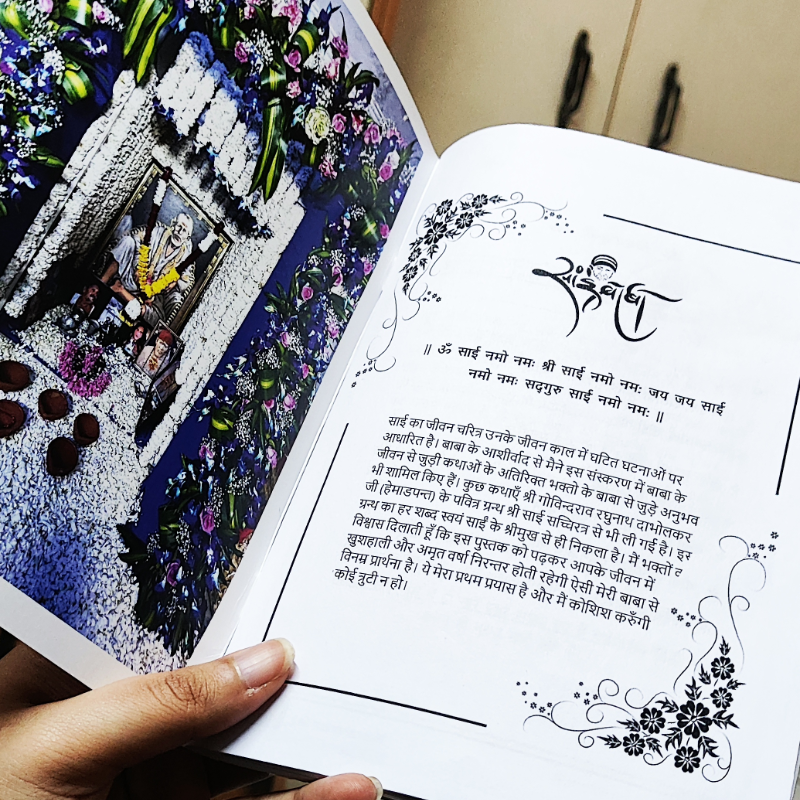 साईं बाबा
॥ ॐ साई नमो नमः श्री साई नमो नमः जय जय साई
नमो नमः सद्गुरु साई नमो नमः ॥
साई का जीवन चरित्र उनके जीवन काल में घटित घटनाओं पर
आधारित है। बाबा के आशीर्वाद से मैने इस संस्करण में बाबा के
जीवन से जुड़ी कथाओं के अतिरिक्त भक्तो के बाबा से जुड़े अनुभव
भी शामिल किए हैं। कुछ कथाएँ श्री गोविन्दराव रघुनाथ दाभोलकर
जी (हेमाडपन्त) के पवित्र ग्रन्थ श्री साई सच्चिरत्र से भी ली गई है। इस
ग्रन्थ का हर शब्द स्वयं साईं के श्रीमुख से ही निकला है। मैं भक्तों
विश्वास दिलाती हूँ कि इस पुस्तक को पढ़कर आपके जीवन में
खुशहाली और अमृत वर्षा निरन्तर होती रहेगी ऐसी मेरी बाबा से
विनम्र प्रार्थना है। ये मेरा प्रथम प्रयास है और मैं कोशिश करुँगी
कोई त्रुटी न हो।